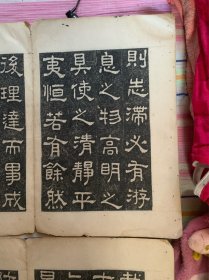 則志滯必有游
息之物高明之
具使之清靜平
夷恒若有餘然
後理達而事成